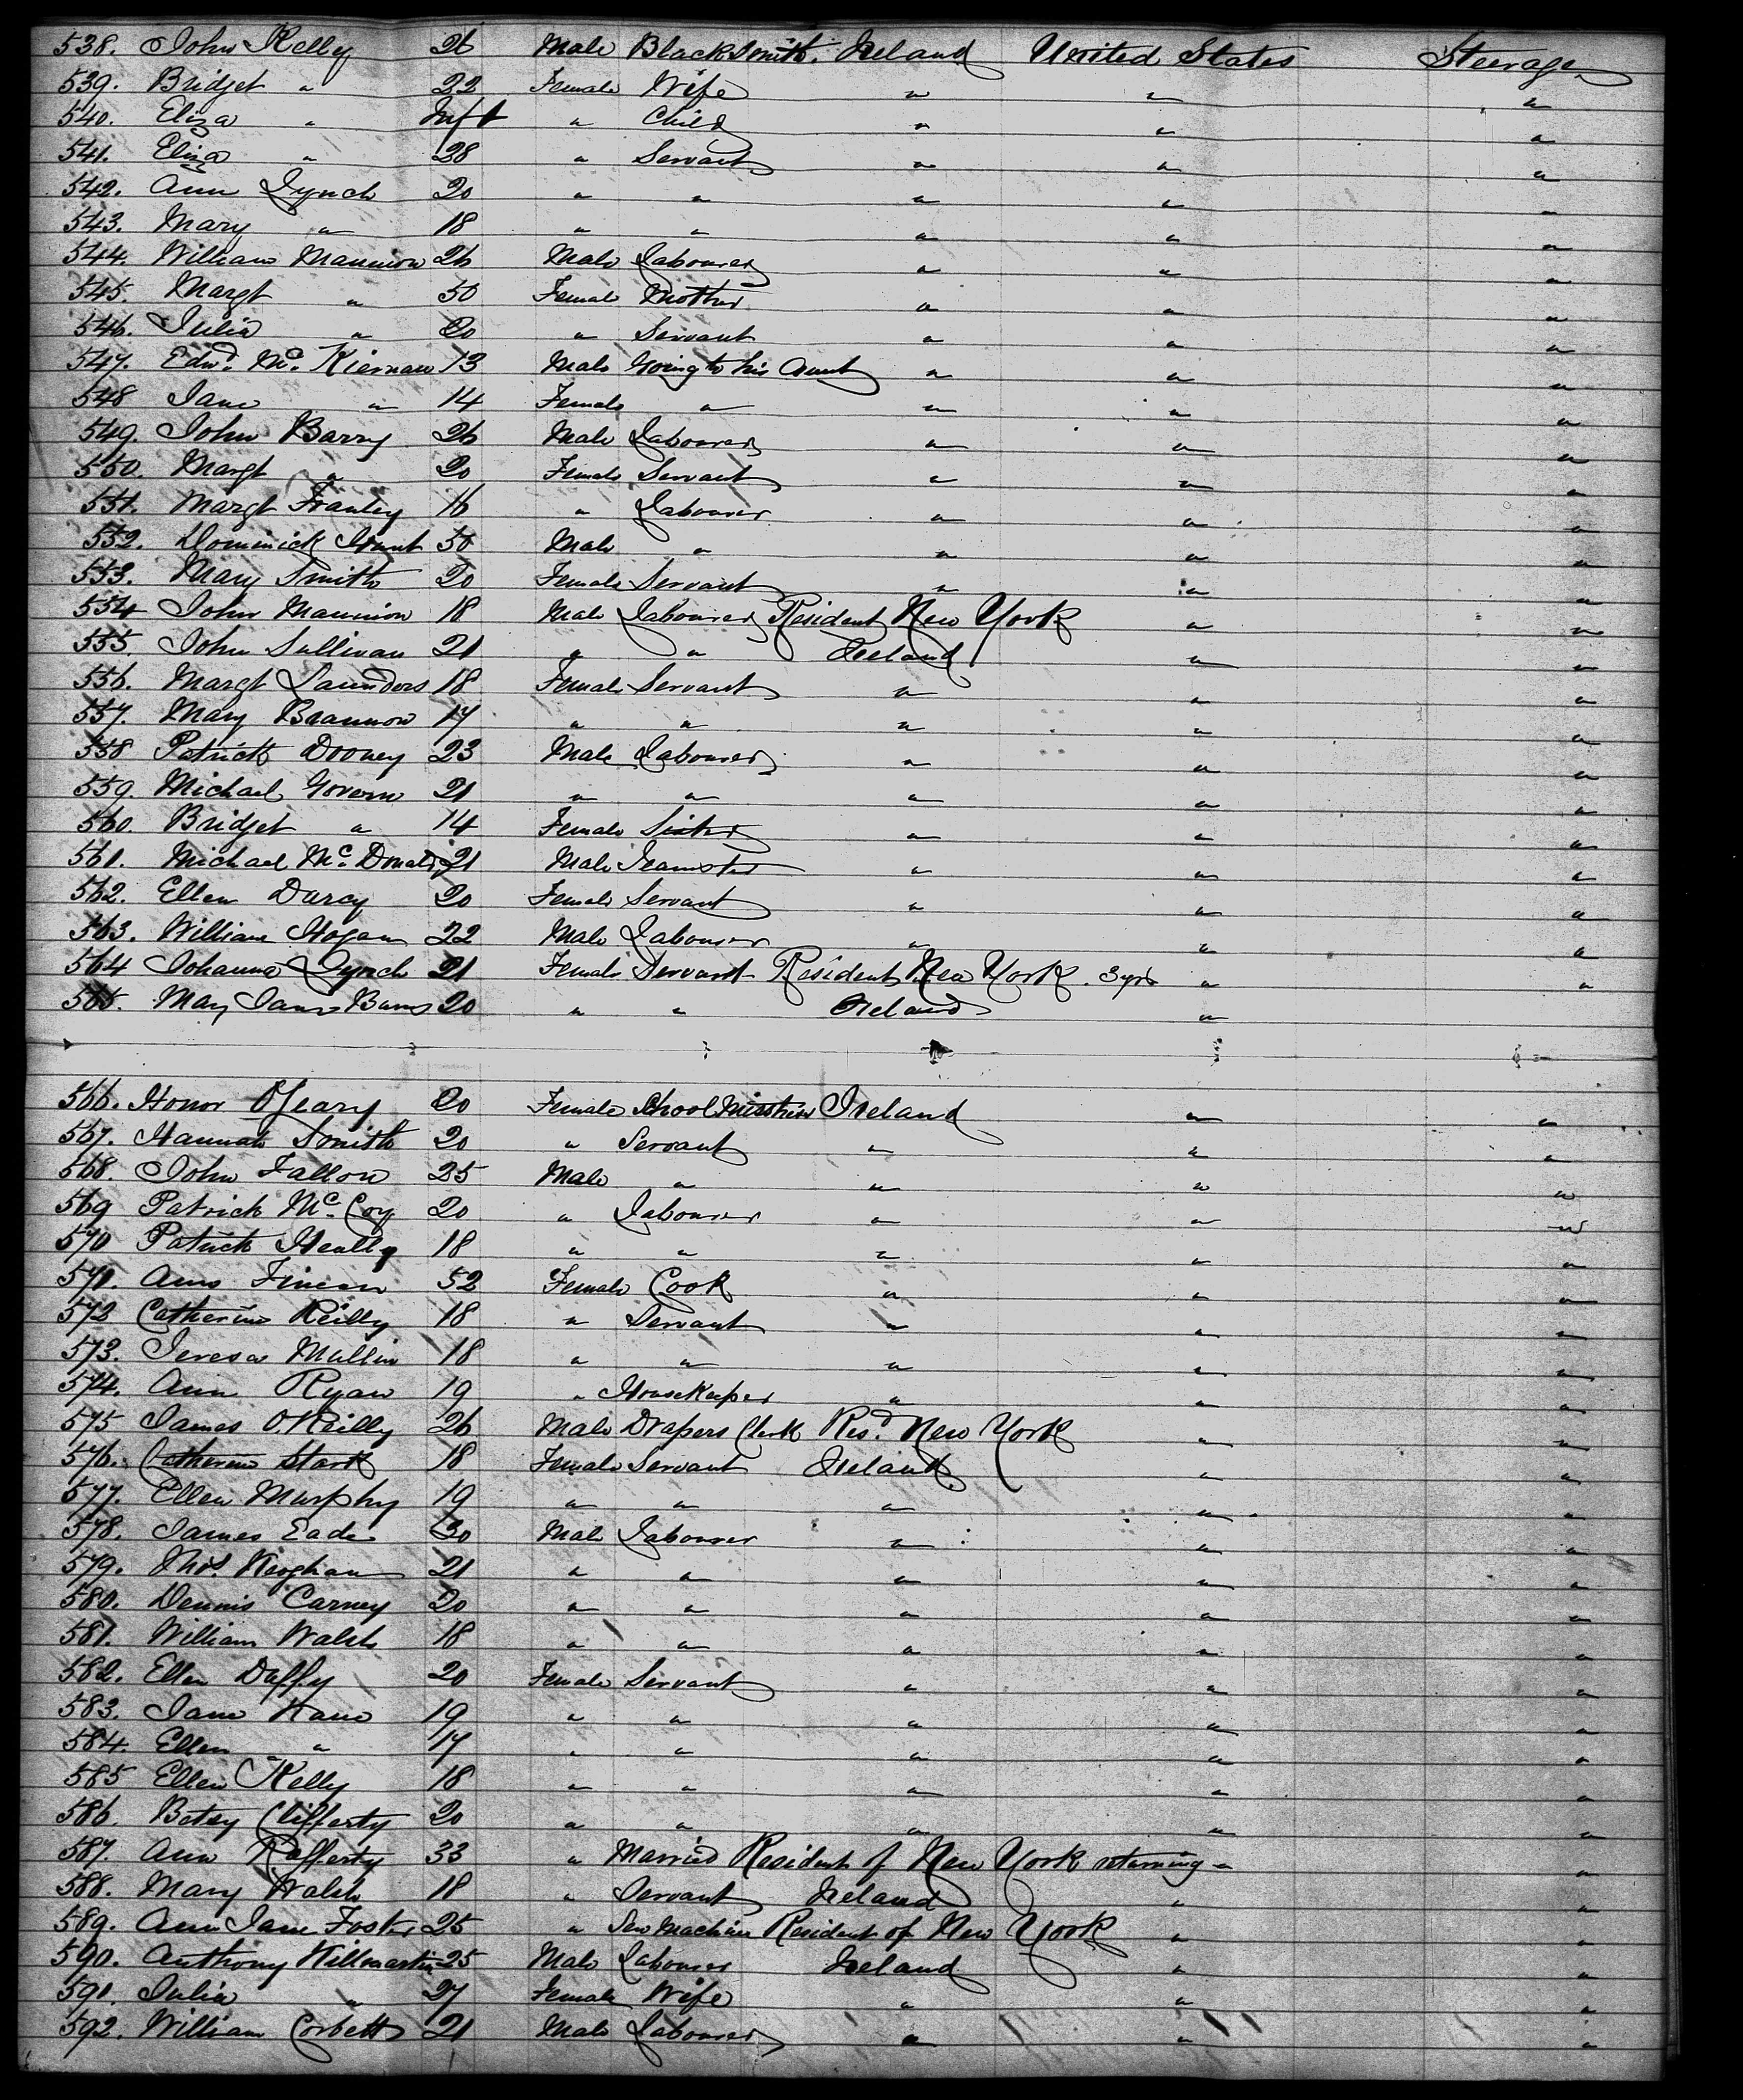 538. John Kelly 26 Male Blacksmith. Ireland United States Steerage
539. Bridget " 22 Female Wife " " "
540. Eliza " Inft " Child " " "
541. Eliza " 28 " Servant " " "
542. Ann Lynch 20 " " " " "
543. Mary " 18 " " " " "
544. William Mannion 26 Male Labourer " " "
545. Margt " 50 Female Mother " " "
546. Julia " 20 " Servant " " "
547. Edwd. Mc. Kiernan 13 Male Going to his Aunt " " "
548 Jane " 14 Female " " " "
549. John Barry 26 Male Labourer " " "
550. Margt " 20 Female Servant " " "
551. Margt Franley 16 " Labourer " " "
552. Dominick Hunt 50 Male " " " "
553. Mary Smith 20 Female Servant " " "
554 John Mannion 18 Male Labourer Resident New York " "
555. John Sullivan 21 " " Ireland " "
556. Margt Saunders 18 Female Servant " " "
557. Mary Brannon 17 " " " " "
558 Patrick Dooney 23 Male Labourer " " "
559. Michael Govern 21 " " " " "
560. Bridget " 14 Female Sister " " "
561. Michael Mc. Donald 21 Male Teamster " " "
562. Ellen Darcy 20 Female Servant " " "
563. William Hogan 22 Male Labourer " " "
564 Johanna Lynch 21 Female Servant Resident New York. 3 yrs " "
565. Mary Jane Burns 20 " " Ireland "
566. Honor O'Leary 20 Female School Mistress Ireland " "
567. Hannah Smith 20 " Servant " " "
568. John Fallon 25 Male " " " "
569 Patrick Mc. Coy 20 " Labourer " " "
570 Patrick Healy 18 " " " " "
571. Ann Finean 52 Female Cook " " "
572 Catherine Reilly 18 " Servant " " "
573. Teresa Mullin 18 " " " " "
574. Ann Ryan 19 " Housekeeper " " "
575 James O'Reilly 26 Male Drapers Clerk Resd. New York " "
576. Catherine Stark 18 Female Servant Ireland " "
577. Ellen Murphy 19 " " " " "
578. James Eade 30 Male Labourer " " "
579. Thos. Keoghan 21 " " " " "
580. Dennis Carney 20 " " " " "
581. William Walsh 18 " " " " "
582. Ellen Duffy 20 Female Servant " " "
583. Jane Kane 19 " " " " "
584. Ellen " 17 " " " " "
585 Ellen Kelly 18 " " " " "
586. Betsy Clifferty 20 " " " " "
587. Ann Rafferty 33 " Married Resident of New York returning " "
588. Mary Walsh 18 " Servant Ireland " "
589. Ann Jane Foster 25 " Sew Machine Resident of New York " "
590. Anthony Killmartin 25 Male Labourer Ireland " "
591. Julia " 27 Female Wife " " "
592. William Corbett 21 Male Labourer " " "